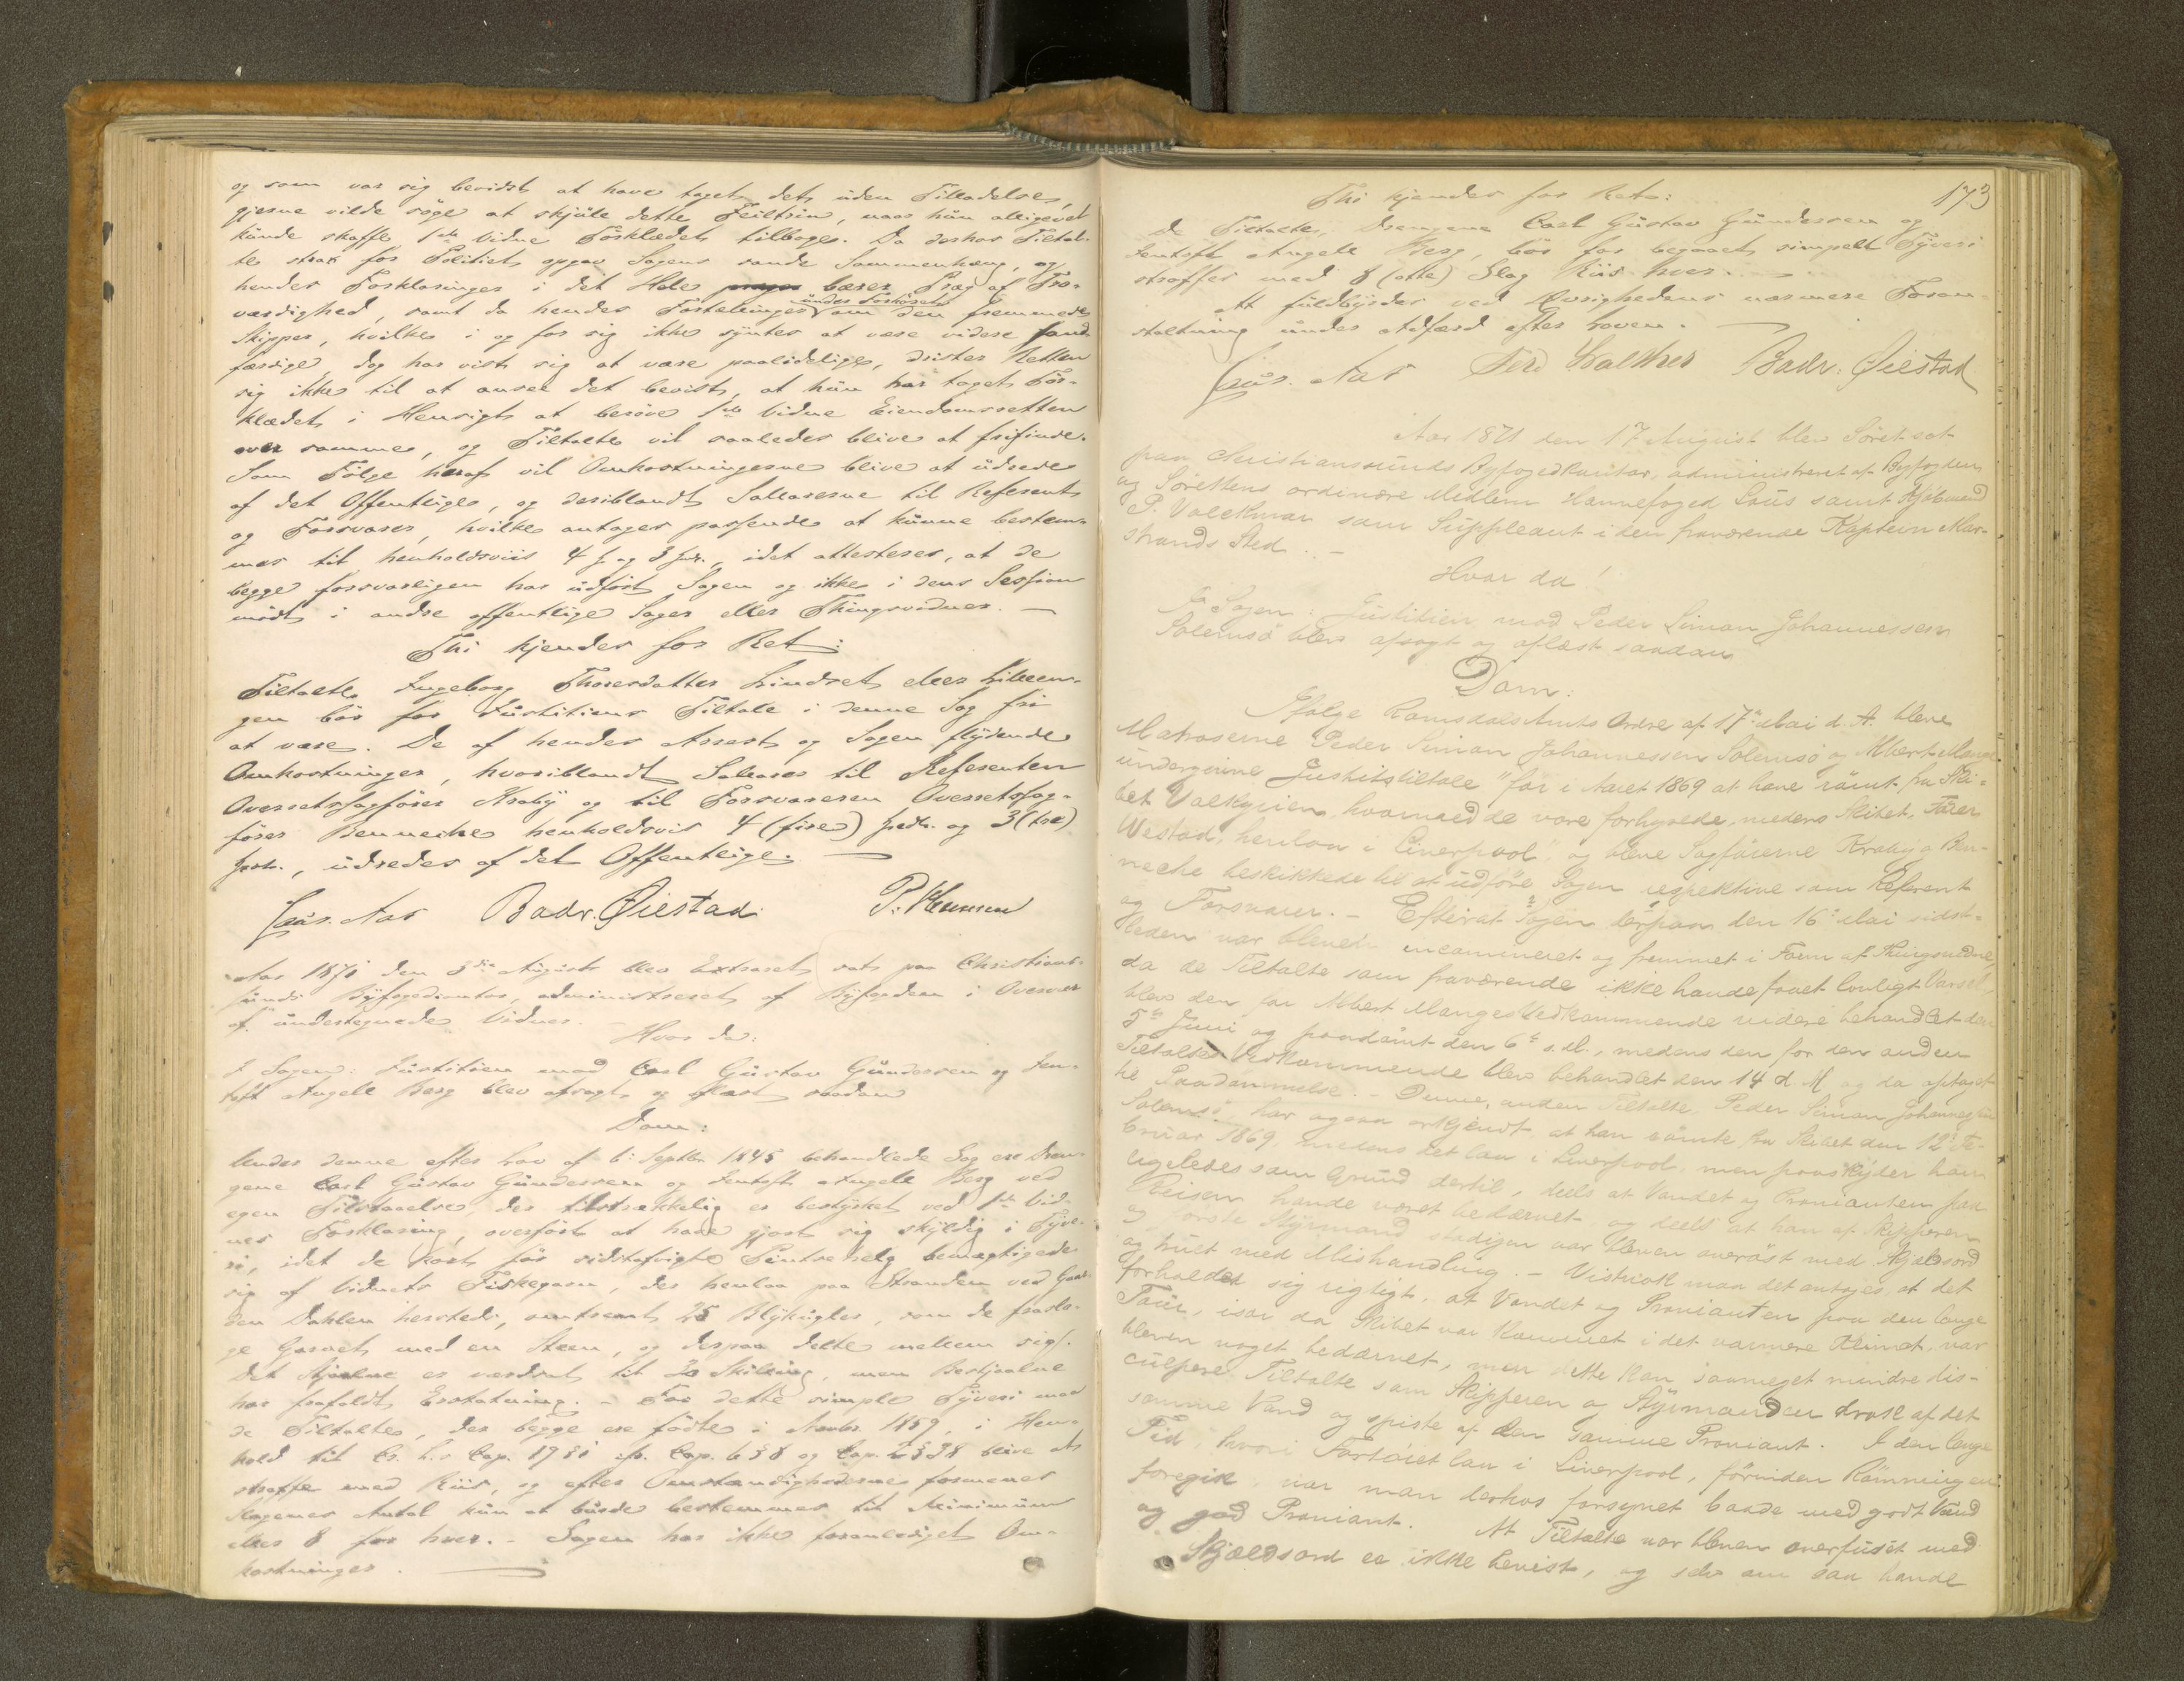 og som var sig bevidst at have taget det uden Tilladelse,
gjerne vilde søge at skjule dette Feiltrin, naar hun alligevel
kunde skaffe 1ste Vidne Tørklædet tilbage. Da derhos Tiltal-
te strax for Politiet opgav Sagens sande Sammenhæng, og
hendes Forklaringer i det Hele bærer Præg af Tro-
værdighed, samt da hendes Fortællinger under Forhøret om den fremmede
Skipper, hvilke i og for sig ikke syntes at være videre sand-
færdige, dog har vist sig at være paalidelige, drister Retten
sig ikke til at ansee det bevist, at hun har taget Tør-
klædet i Hensigt at berøve 1ste Vidne Eiendomsretten
over samme, og Tiltalte vil saaledes blive at frifinde.
Som Følge heraf vil Omkostningerne blive at udrede
af det Offentlige, og deriblandt Sallarerne til Referent
og Forsvarer, hvilke antages passende at kunne bestem-
mes til henholdsviis 4 og 3 Spd., idet attesteres, at de
begge forsvarligen har udført Sagen og ikke i dens Session
mødt i andre offentlige Sager eller Thingsvidner. —
Thi kjendes for Ret:
Tiltalte Ingeborg Thoresdatter Lindset eller Lilleen-
gen bør for Justitiens Tiltale i denne Sag fri
at være. De af hendes Arrest og Sagen flydende
Omkostninger, hvoriblandt Salarer til Referenten
Overretssagfører Kraby og til Forsvareren Overretssag-
fører Bennecke henholdsvis 4 (fire) Spd. og 3 (tre)
Spd., udredes af det Offentlige. —
Badv. Øiestad
Aar 1871 den 3die August blev Extraret sat paa Christian-
sunds Byfogedcontor, administreret af Byfogden i Overvær
af undertegnede Vidner.
Hvor da:
I Sagen: Justitien mod Carl Gustav Gundersen og Jen-
toft Angell Berg blev afsagt og aflæst saadan
Dom:
Under denne efter Lov af 6. Septbr. 1845 behandlede Sag ere Dren-
gene Carl Gustav Gundersen og Jentoft Angell Berg ved
egen Tilstaaelse, der tilstrækkelig er bestyrket ved 1ste Vid-
nes Forklaring, overført at have gjort sig skyldig i Tyve-
ri, idet de kort før sidstafvigte Pintsehelg bemægtigede
sig af Vidnets Fiskegarn, der henlaa paa Stranden ved Gaar-
den Dahlen hersteds, omtrent 25 Blykugler, som de frasla-
ge Garnet med en Steen, og derpaa delte mellem sig.
Det Stjaalne er værdsat til Skilling, men Bestjaalne
har frafaldt Erstatning. – For dette simple Tyveri maa
de Tiltalte, der begge ere fødte i Novbr. 1859, i Hen-
hold til Cr. L.s Cap. 19 § 1 jfr. Cap. 6 § 8 og Cap. 2 § 38 blive at
straffe med Riis, og efter Omstændighederne formenes
Slagenes Antal kun at burde bestemmes til Minimum
eller 8 for hver. – Sagen har ikke foranlediget Om-
kostninger. —
173
Thi kjendes for Ret:
de Tiltalte, Drengene Carl Gustav Gundersen og
Jentoft Angell Berg, bør for begaaet simpelt Tyveri
straffes med 8 (otte) Slag Riis hver. —
At fuldbyrdes ved Øvrighedens nærmere Foran-
staltning under Adfærd efter Loven. —
Badv. Øiestad
Aar 1871 den 17 August blev Søret sat
paa Christianssunds Byfogedkontor, administreret af Byfogden
og Sørettens ordinære Medlem Havnefoged Lous samt Kjøbmand
P. Volckmar som Suppleant i den fraværende Kaptein Mar-
strands Sted. –
Hvor da!
I Sagen: Justitien mod Peder Simon Johannessen
Solemsø blev afsagt og aflæst saadan
Dom:
Ifølge Romsdals Amts Ordre af 17de Mai d. A. bleve
Matroserne Peder Simon Johannessen Solemsø og Albert Mange
undergivne Justitstiltale "for i Aaret 1869 at have rømt fra Ski-
bet Valkyrien, hvormed de vare forhyrede, medens Skibet, Fører
Westad, henlaa i Liverpool" og bleve Sagførerne Kraby og Ben-
necke beskikkede til at udføre Sagen respektive som Referent
og Forsvarer. – Efterat Sagen derpaa den 16de Mai sidst-
leden var blevet incamineret og fremmet i Form af Thingsvidne,
da de Tiltalte som fraværende ikke havde faaet lovligt Varsel,
blev den for Albert Manges Vedkommende videre behandlet den
5te Juni og paadømt den 6te s. M., medens den for den anden
Tiltaltes Vedkommende blev behandlet den 14 d. M. og da optaget
til Paadømmelse. – Denne, anden Tiltalte, Peder Simon Johannessen
Solemsø, har ogsaa erkjendt, at han rømte fra Skibet den 12te Fe-
bruar 1869, medens det laa i Liverpool, men paaskyder han
ligeledes som Grund dertil, deels at Vandet og Provianten paa
Reisen havde været bedærvet og deels at han af Skipperen
og første Styrmand stadigen var bleven overøst med Skjældsord
og truet med Mishandling. – Vistnok maa det antages, at det
forholder sig rigtigt, at Vandet og Provianten paa den lange
Tour, især da Skibet var kommet i det varmere Klimat, var
bleven noget bedærvet, men dette kan saameget mindre dis-
culpere Tiltalte som Skipperen og Styrmanden drak af det
samme Vand og spiste af den samme Proviant. I den lange
Tid, hvori Fartøiet laa i Liverpool, førinden Rømningen
foregik, var man derhos forsynet baade med godt Vand
og god Proviant. At Tiltalte var bleven overfuset med
Skjældsord er ikke bevist, og selv om saa havde